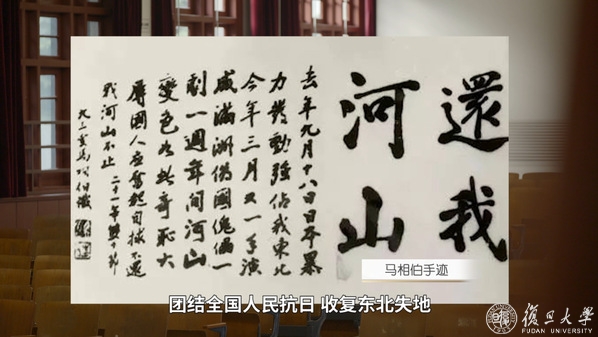 還我
河山
去年九月十八日日本暴
力發動强佔我東北
今年三月又一手演
成滿洲僞國傀儡一
劇一週年間河山
變色如此奇恥大
辱國人應奮起自救不還
我河山不止 二十一年雙十節
九三叟馬相伯識
马相伯手迹
团结全国人民抗日 收复东北失地
復旦大學
FUDAN UNIVERSITY